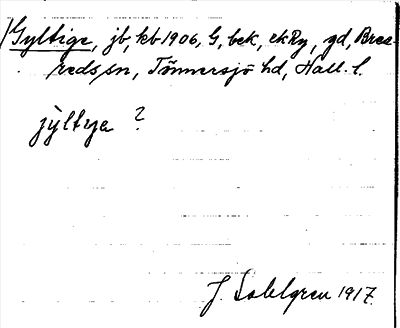 Gyltige, jb, kb 1906, G, bek, ekRy, gd, Breared
s sn, Tönnersjö hd, Hall. l.
jỳltya ?
J. Sahlgren 1917.